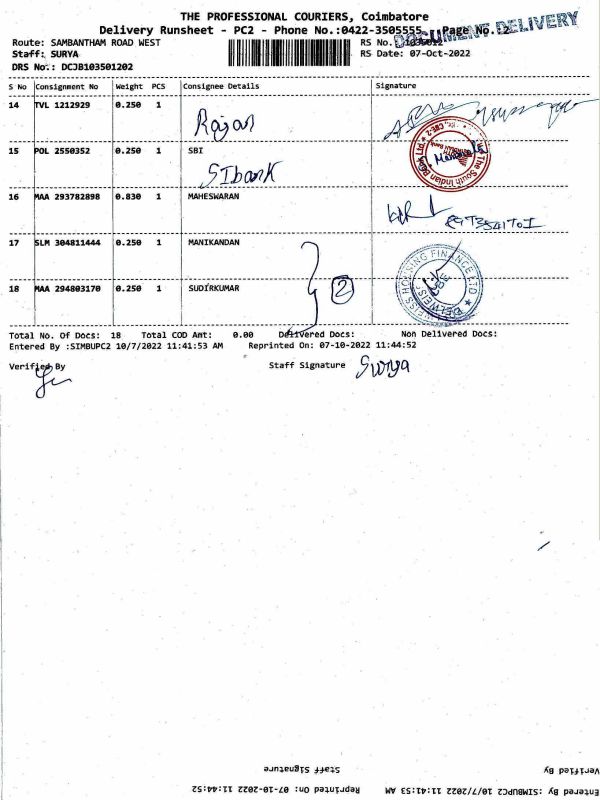 THE PROFESSIONAL COURIERS, Coimbatore
Delivery Runsheet - PC2 - Phone No.:0422-3505555 Page No.:2
DOCUMENT DELIVERY
Route: SAMBANTHAM ROAD WEST RS No.
Staff: SURYA RS Date: 07-Oct-2022
DRS No.: DCJB103501202
S No Consignment No Weight PCS Consignee Details Signature
14 TVL 1212929 0.250 1
Rajan
15 POL 2550352 0.250 1 SBI
SIbank
The South Indian Bank Ltd
16 MAA 293782898 0.830 1 MAHESWARAN
17 SLM 304811444 0.250 1 MANIKANDAN
2
18 MAA 294803170 0.250 1 SUDIRKUMAR
HOUSING FINANCE LTD
Total No. Of Docs: 18 Total COD Amt: 0.00 Delivered Docs: Non Delivered Docs:
Entered By :SIMBUPC2 10/7/2022 11:41:53 AM Reprinted On: 07-10-2022 11:44:52
Verified By Staff Signature Surya
Verified By Staff Signature
Entered By :SIMBUPC2 10/7/2022 11:41:53 AM Reprinted On: 07-10-2022 11:44:52